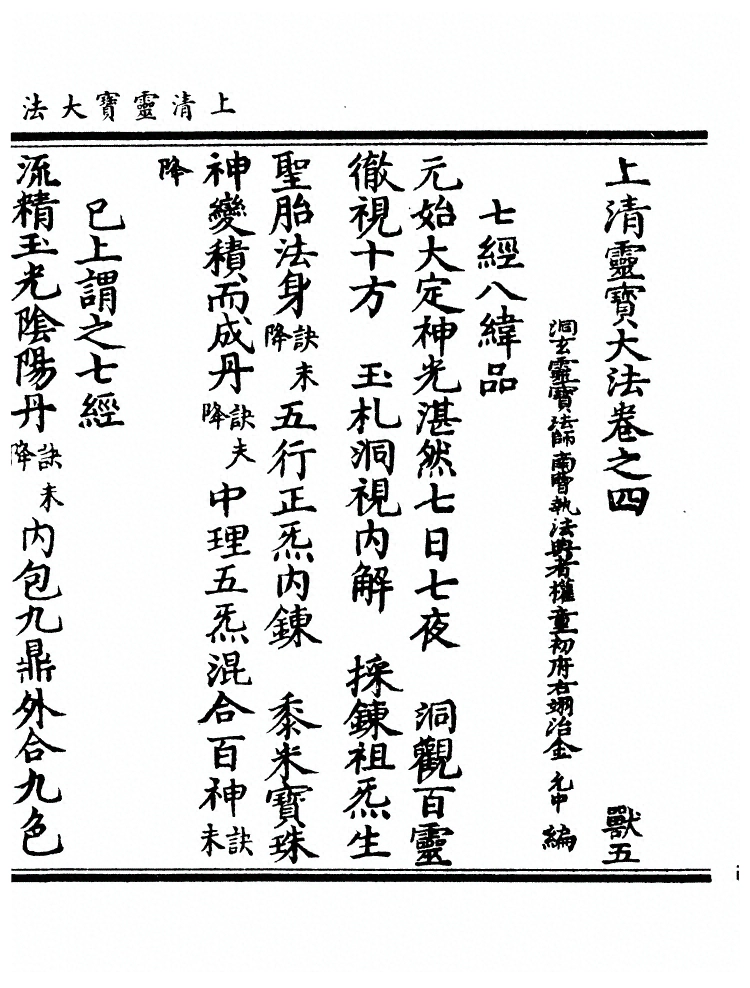 上清靈寶大法
上清靈寶大法卷之四 獸五
洞玄靈寶法師南曹執法典者權童初府右翊治金 允中 編
七經八緯品
元始大定神光湛然七日七夜 洞觀百靈
徹視十方 玉札洞視內解 採鍊祖炁生
聖胎法身訣未降 五行正炁內鍊 黍米寶珠
神變積而成丹訣夫降 中理五炁混合百神訣未
降
已上謂之七經
流精玉光陰陽丹訣未降 內包九鼎外合九色